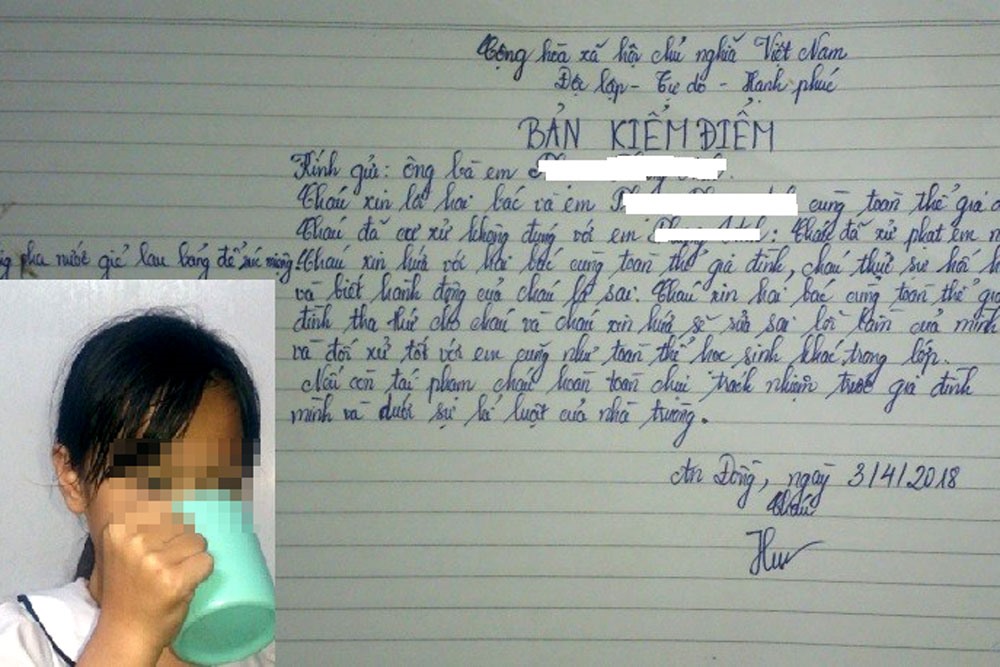 Cộng hòa xã hội chủ nghĩa Việt Nam
Độc lập - Tự do - Hạnh phúc
BẢN KIỂM ĐIỂM
Kính gửi: ông bà em
Cháu xin lỗi hai bác và em cùng toàn thể gia
Cháu đã cư xử không đụng với em : Cháu đã xử phạt em
pha nước giẻ lau bảng để súc miệng. Cháu xin hứa với hai bác cùng toàn thể gia đình, cháu thực sự hối
và biết hành động của cháu là sai. Cháu xin hai bác cùng toàn thể
đình tha thứ cho cháu và cháu xin hứa sẽ sửa sai lỗi lầm của mình
và đối xử tốt với em cũng như toàn thể học sinh khác trong lớp.
Nếu còn tái phạm cháu hoàn toàn chịu trách nhiệm trước gia đình
mình và dưới sự kỉ luật của nhà trường.
An Đồng, ngày 3/4/2018
Cháu